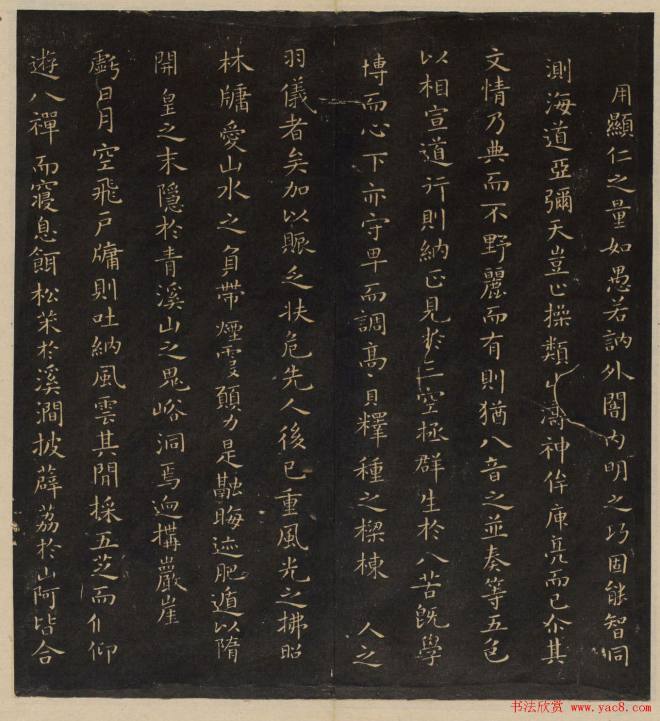 用顯仁之量如愚若訥外闇内明之巧固能智同
測海道亞彌天豈止操類山濤神侔庾亮而已尒其
文情乃典而不野麗而有則猶八音之並奏等五色
以相宣道行則納正見於三空拯群生於八苦既學
博而心下亦守卑而調髙員釋種之樑棟 人之
羽儀者矣加以賑乏扶危先人後已重風光之拂照
林牖愛山水之負帶煙雲願力是融晦迹肥遁以隋
開皇之末隱於青溪山之鬼峪洞焉迥搆巖崖
虧日月空飛戸牖則吐納風雲其閒採五芝而偃仰
遊八禪而寢息餌松朮於溪澗披薜荔於山阿皆合
书法欣赏 www.yac8.com